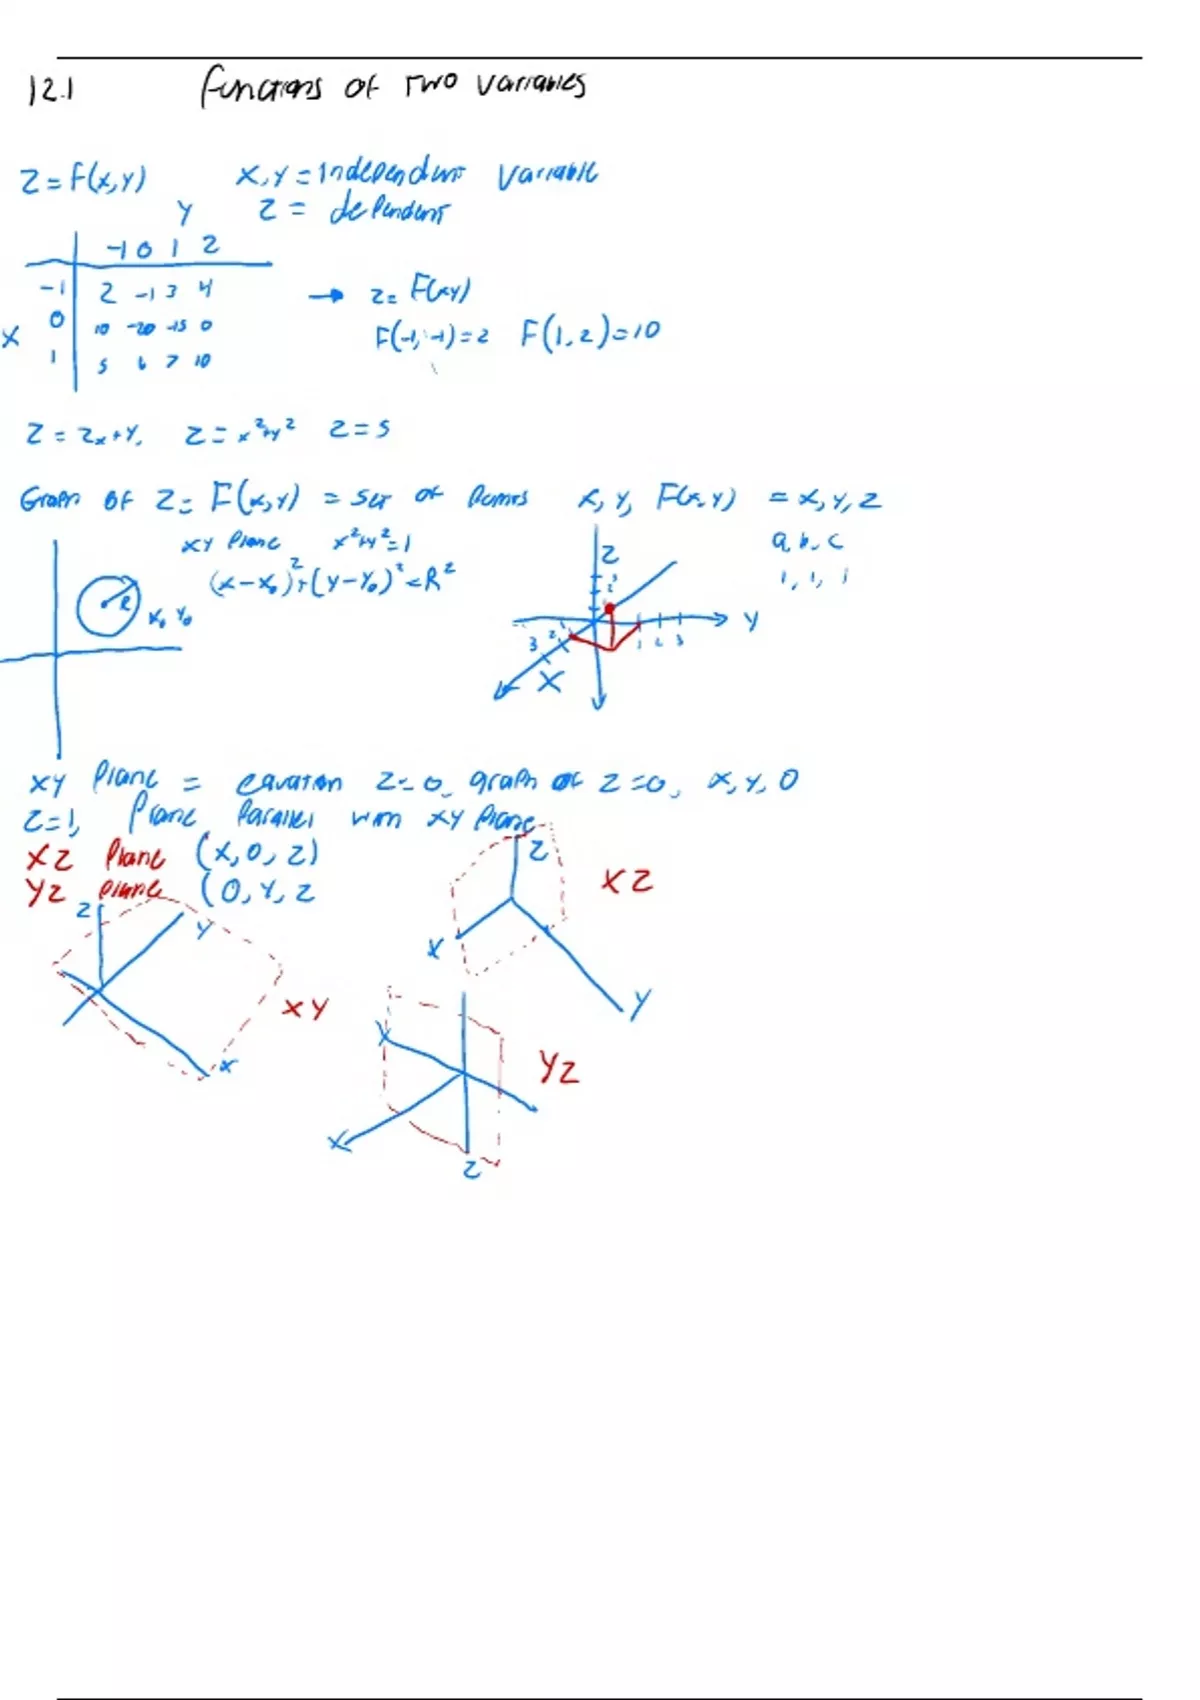 12.1 Functions of Two Variables
Z = F(x,y) X,Y = Independent Variable
Y Z = dependent
-1 0 1 2
-1 2 -1 3 4 → Z = F(x,y)
0 10 -20 -15 0 F(-1,-1)=2 F(1,2)=10
X
1 5 6 7 10
Z = 2x+y, Z = x²+y² Z=5
Graph of Z = F(x,y) = set of Points x, y, F(x,y) = x, y, z
xy Plane x²+y²=1 a, b, c
(x-x₀)²+(y-y₀)²=R² 1, 1, 1
R x₀ y₀
Z
2
1
3 2 1 1 2 3 Y
X
XY Plane = equation Z=0, graph of Z=0, x, y, 0
Z=1, Plane Parallel with XY Plane
XZ Plane (x, 0, z)
YZ Plane (0, y, z
Z Y X XY
Z X Y XZ
Y X Z YZ